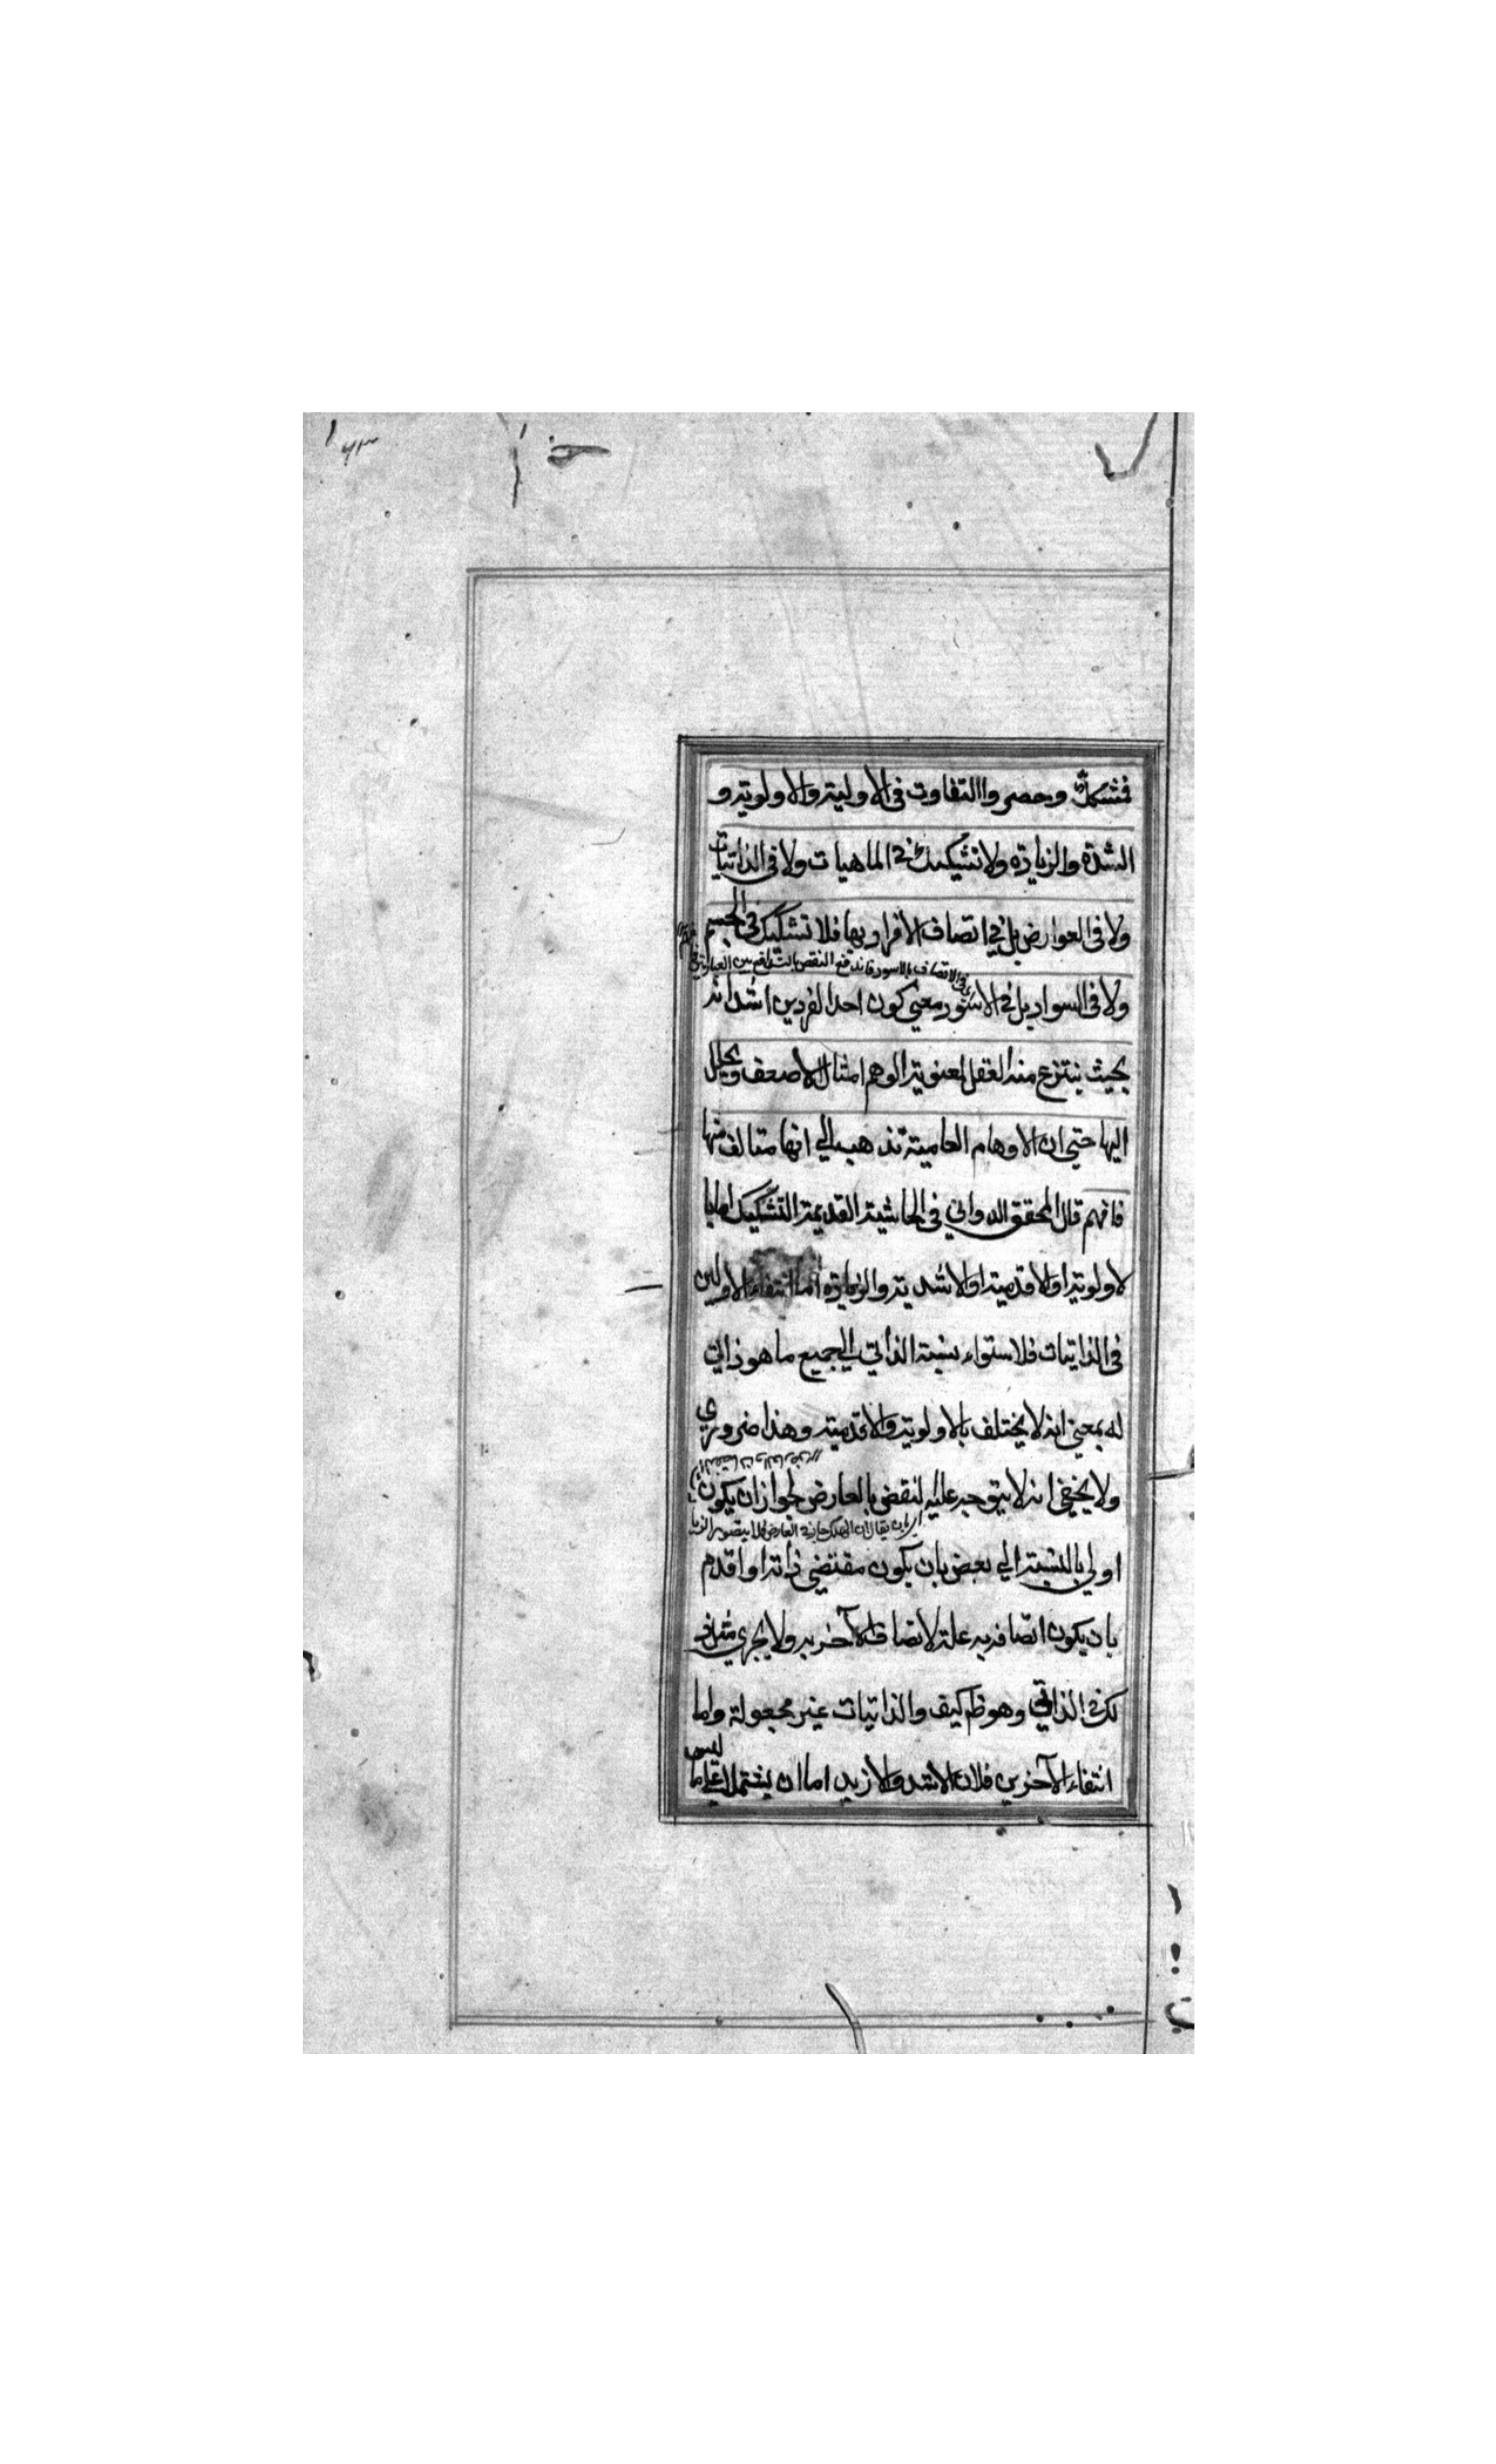 فمشكك وحصروا التفاوت في الاولية والاولوية و
الشدة والزيادة ولا تشكيك في الماهيات ولا في الذاتيات
ولا في العوارض بل في اتصاف الافراد بها فلا تشكيك في الجسم
في الاتصاف بالاسود فاندفع النقض بالتدافع بين العبارتين
ولا في السواد بل في الاسود معنى كون احد الفردين اشد انه
بحيث ينتزع منه العقل لمعنوية الوهم امثال الاضعف ويحلل
اليها حتى ان الاوهام العامية تذهب الي انها متالف منها
فافهم قال المحقق الدواني في الحاشية القديمة التشكيك اما با
لاولوية او الاقدمية او الاشدية والزيادة اما انتفاء الاولين
في الذاتيات فلاستواء نسبة الذاتي الي جميع ما هو ذاتي
له بمعنى انه لا يختلف بالاولوية والاقدمية وهذا ضروري
ولا يخفي انه لا يتوجه عليه النقض بالعارض لجواز ان يكون
بان يقال ان العارض لا يتصور
اولي بالنسبة الي بعض بان يكون مقتضي ذاته او اقدم
بان يكون اتصافه به علة لاتصاف الآخر به ولا يجري مثل ذ
لك في الذاتي وهو ظم كيف والذاتيات غير مجعولة واما
انتفاء الآخرين فلان الاشد والازيد اما ان يشتمل علي ما ليس